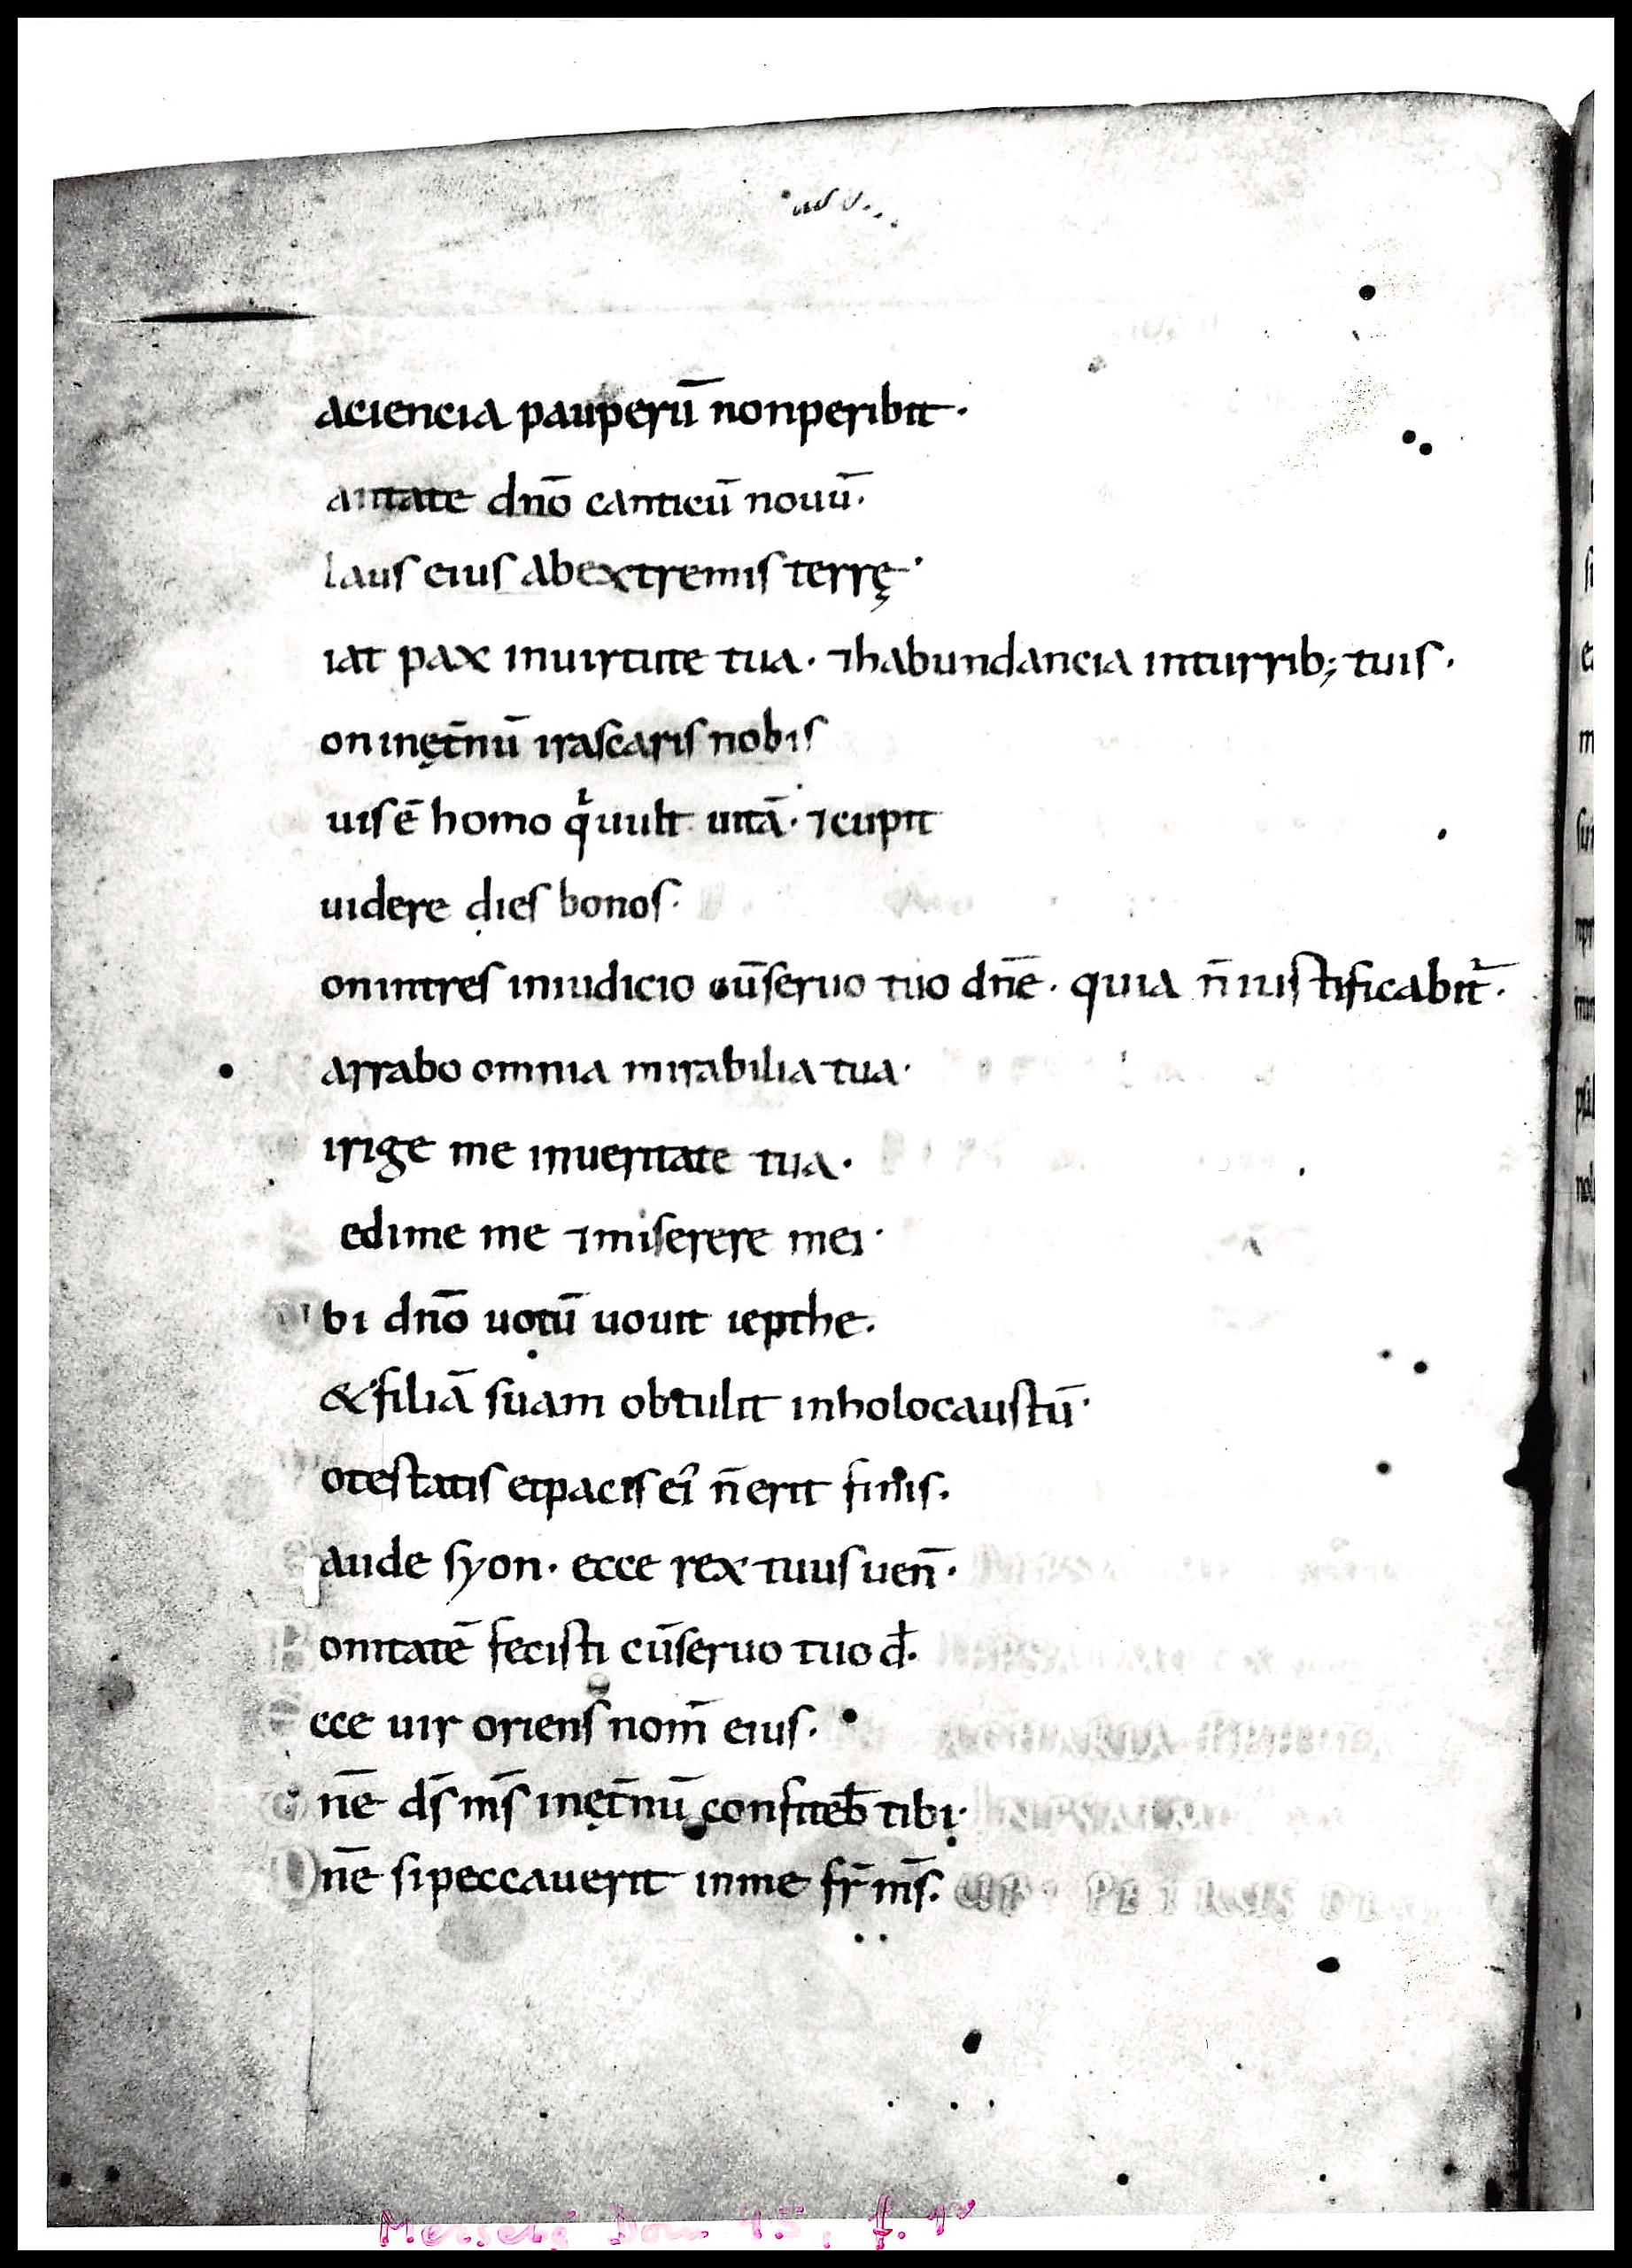 aciencia pauperū nonperibit·
antate dn̄o canticū nouū·
laus eius abextremis terrę·
iat pax inuirtute tua· ⁊habundancia inturrib; tuis·
on inęt̄nū irascaris nobis
uis ē homo qͥ uult uitā· ⁊cupit
uidere dies bonos·
onintres iniudicio cūseruo tuo dn̄e· quia n̄ iustificabit᷑·
arrabo omnia mirabilia tua·
irige me inueritate tua·
edime me ⁊miserere mei·
bi dn̄o uotū uouit iepthe·
&filiā suam obtulit inholocaustū·
otestatis etpacis ei᷒ n̄ erit finis·
aude syon· ecce rex tuus uen̄·
Bonitatē fecisti cūseruo tuo d̄·
ecce uir oriens nom̄ eius·
nē ds̄ ms̄ inęt̄nū confiteb̄ tibi·
Dn̄e sipeccauerit inme fr̄ ms̄·
Merseb Dom 45, f. 1v